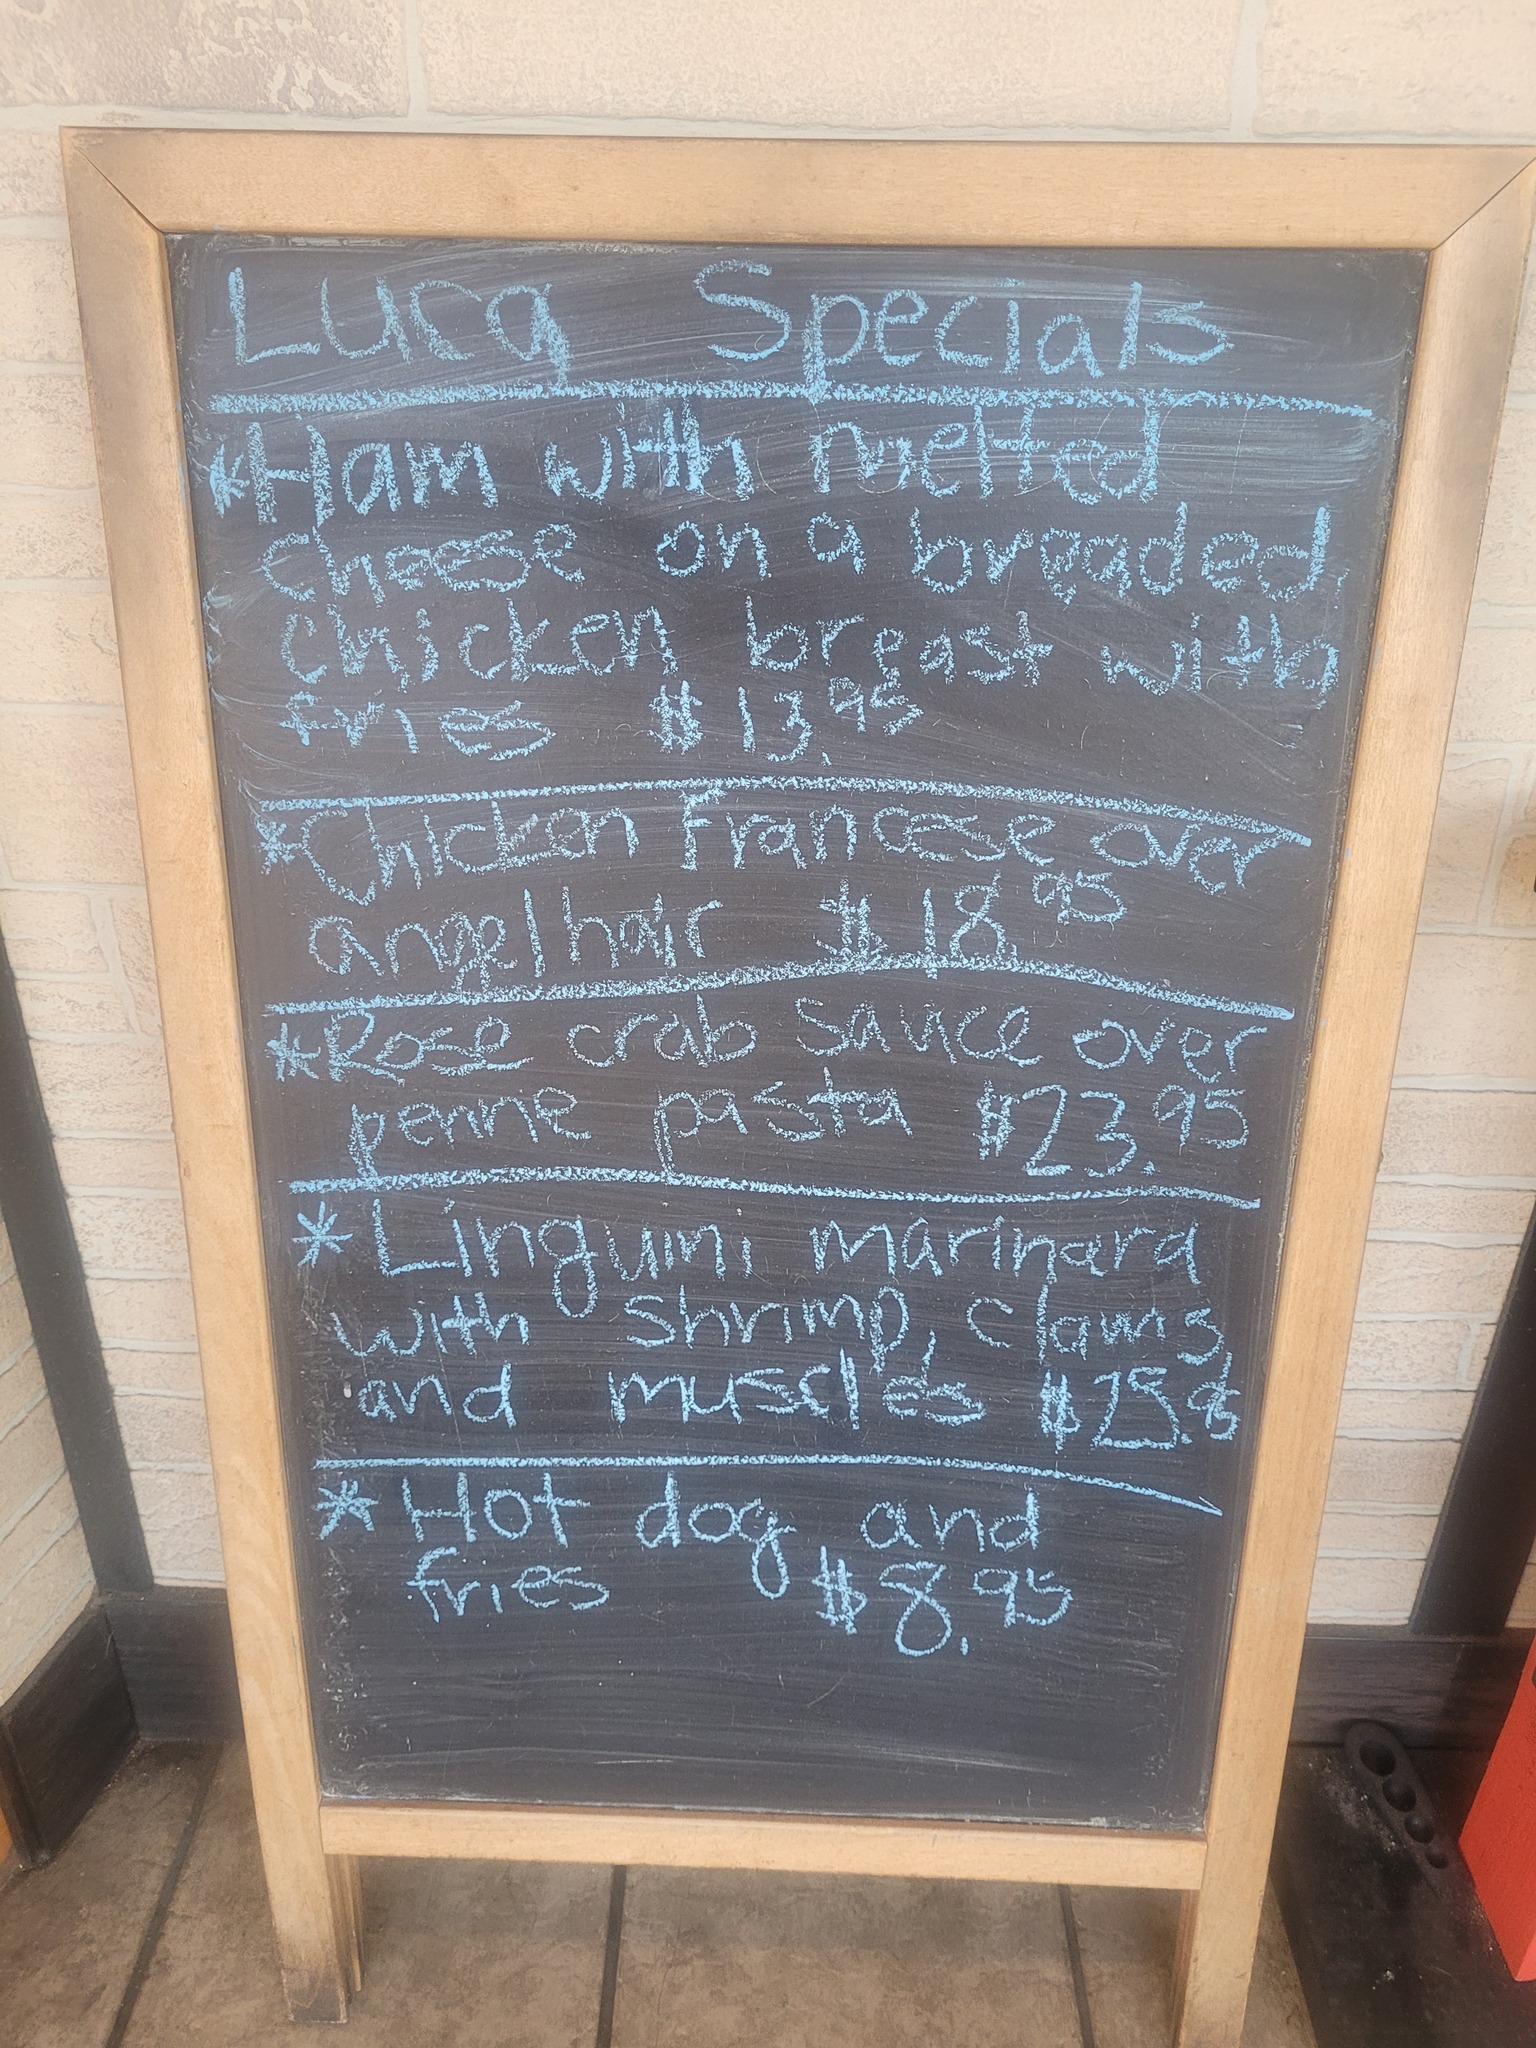 Luca Specials
*Ham with melted
cheese on a breaded
chicken breast with
fries $13.95
*Chicken Francese over
angelhair $18.95
*Rose crab sauce over
penne pasta $23.95
*Linguini marinara
with shrimp, clams
and muscles
*Hot dog and
fries $8.95